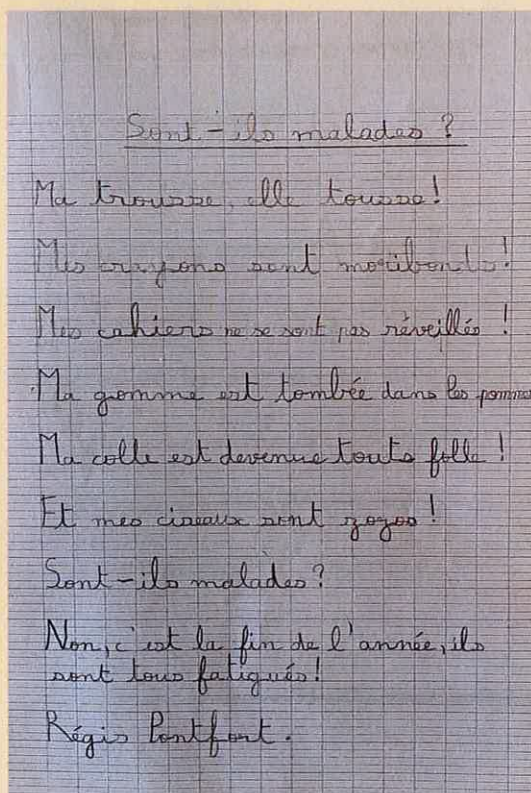 Sont-ils malades ?
Ma trousse, elle tousse !
Mes crayons sont moribonds !
Mes cahiers ne se sont pas réveillés !
Ma gomme est tombée dans les pommes
Ma colle est devenue toute folle !
Et mes ciseaux sont zozos !
Sont-ils malades ?
Non, c'est la fin de l'année, ils
sont tous fatigués !
Régis Pontfort.